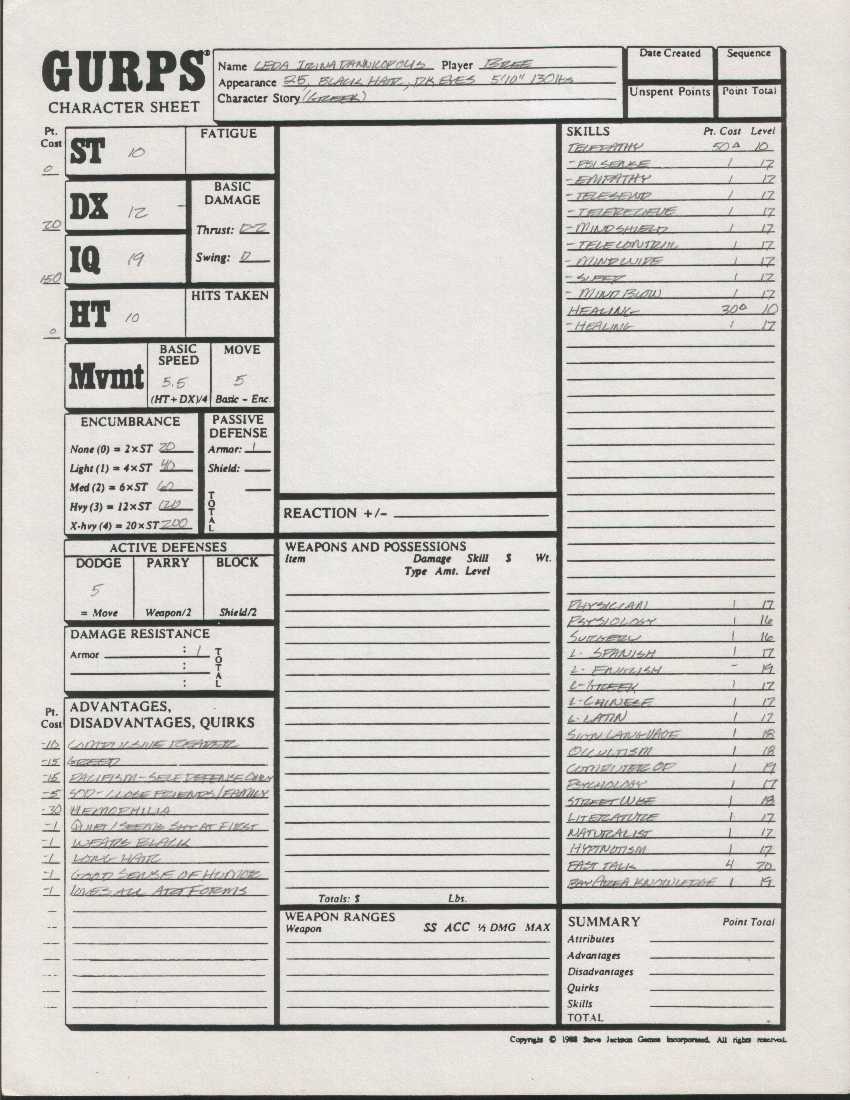 GURPS®
CHARACTER SHEET
Name LEDA IRINA DANNICOPOLIS Player BREE
Appearance 25, BLACK HAIR, DK EYES 5'10" 130 lbs
Character Story (GREEK)
Date Created
Sequence
Unspent Points
Point Total
Pt. Cost
0 ST 10
FATIGUE
20 DX 12
BASIC DAMAGE
Thrust: D-2
Swing: D
150 IQ 19
0 HT 10
HITS TAKEN
Mvmt
BASIC SPEED
5.5
(HT + DX)/4
MOVE
5
Basic – Enc.
ENCUMBRANCE
None (0) = 2×ST 20
Light (1) = 4×ST 40
Med (2) = 6×ST 60
Hvy (3) = 12×ST 120
X-hvy (4) = 20×ST 200
PASSIVE DEFENSE
Armor: 1
Shield:
TOTAL
ACTIVE DEFENSES
DODGE PARRY BLOCK
5
= Move Weapon/2 Shield/2
DAMAGE RESISTANCE
Armor : 1
:
:
TOTAL
Pt. Cost
ADVANTAGES,
DISADVANTAGES, QUIRKS
-10 COMPULSIVE READER
-15 GREED
-15 PACIFISM - SELF DEFENSE ONLY
-5 SOD - CLOSE FRIENDS/FAMILY
-30 HEMOPHILIA
-1 QUIET/SEEMS SHY AT FIRST
-1 WEARS BLACK
-1 LONG HAIR
-1 GOOD SENSE OF HUMOR
-1 LOVES ALL ART FORMS
REACTION +/-
WEAPONS AND POSSESSIONS
Item Damage Skill $ Wt.
Type Amt. Level
Totals: $ Lbs.
WEAPON RANGES
Weapon SS ACC ½ DMG MAX
SKILLS Pt. Cost Level
TELEPATHY 50 10
- PSI SENSE 1 17
- EMPATHY 1 17
- TELESEND 1 17
- TELERECIEVE 1 17
- MIND SHIELD 1 17
- TELECONTROL 1 17
- MINDWIPE 1 17
- SLEEP 1 17
- MIND BLOW 1 17
HEALING 30 10
- HEALING 1 17
PHYSICIAN 1 17
PHYSIOLOGY 1 16
SURGERY 1 16
L- SPANISH 1 17
L- ENGLISH - 19
L- GREEK 1 17
L- CHINESE 1 17
L- LATIN 1 17
SIGN LANGUAGE 1 18
OCCULTISM 1 18
COMPUTER OP 1 19
PSYCHOLOGY 1 17
STREETWISE 1 18
LITERATURE 1 17
NATURALIST 1 17
HYPNOTISM 1 17
FAST TALK 4 20
BAY AREA KNOWLEDGE 1 19
SUMMARY Point Total
Attributes
Advantages
Disadvantages
Quirks
Skills
TOTAL
Copyright © 1988 Steve Jackson Games Incorporated. All rights reserved.